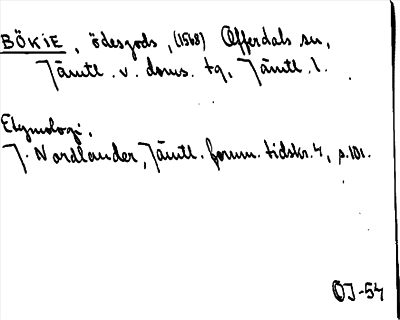 BÖKIE, ödesgods, (1568) Offerdals sn,
Jämtl. v. doms. tg, Jämtl. l.
Etymologi.
J. Nordlander, Jämtl. fornm. tidskr. 4, s. 101.
OJ-54